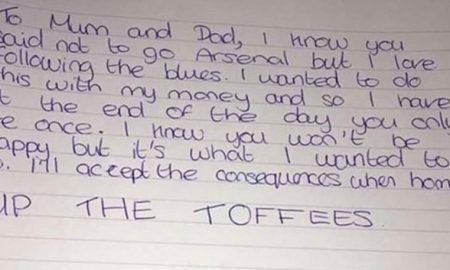 To Mum and Dad, I know you
said not to go Arsenal but I love
following the blues. I wanted to do
this with my money and so I have
t the end of the day you only
e once. I know you won't be
appy but it's what I wanted to
. I'll accept the consequences when hom
UP THE TOFFEES.